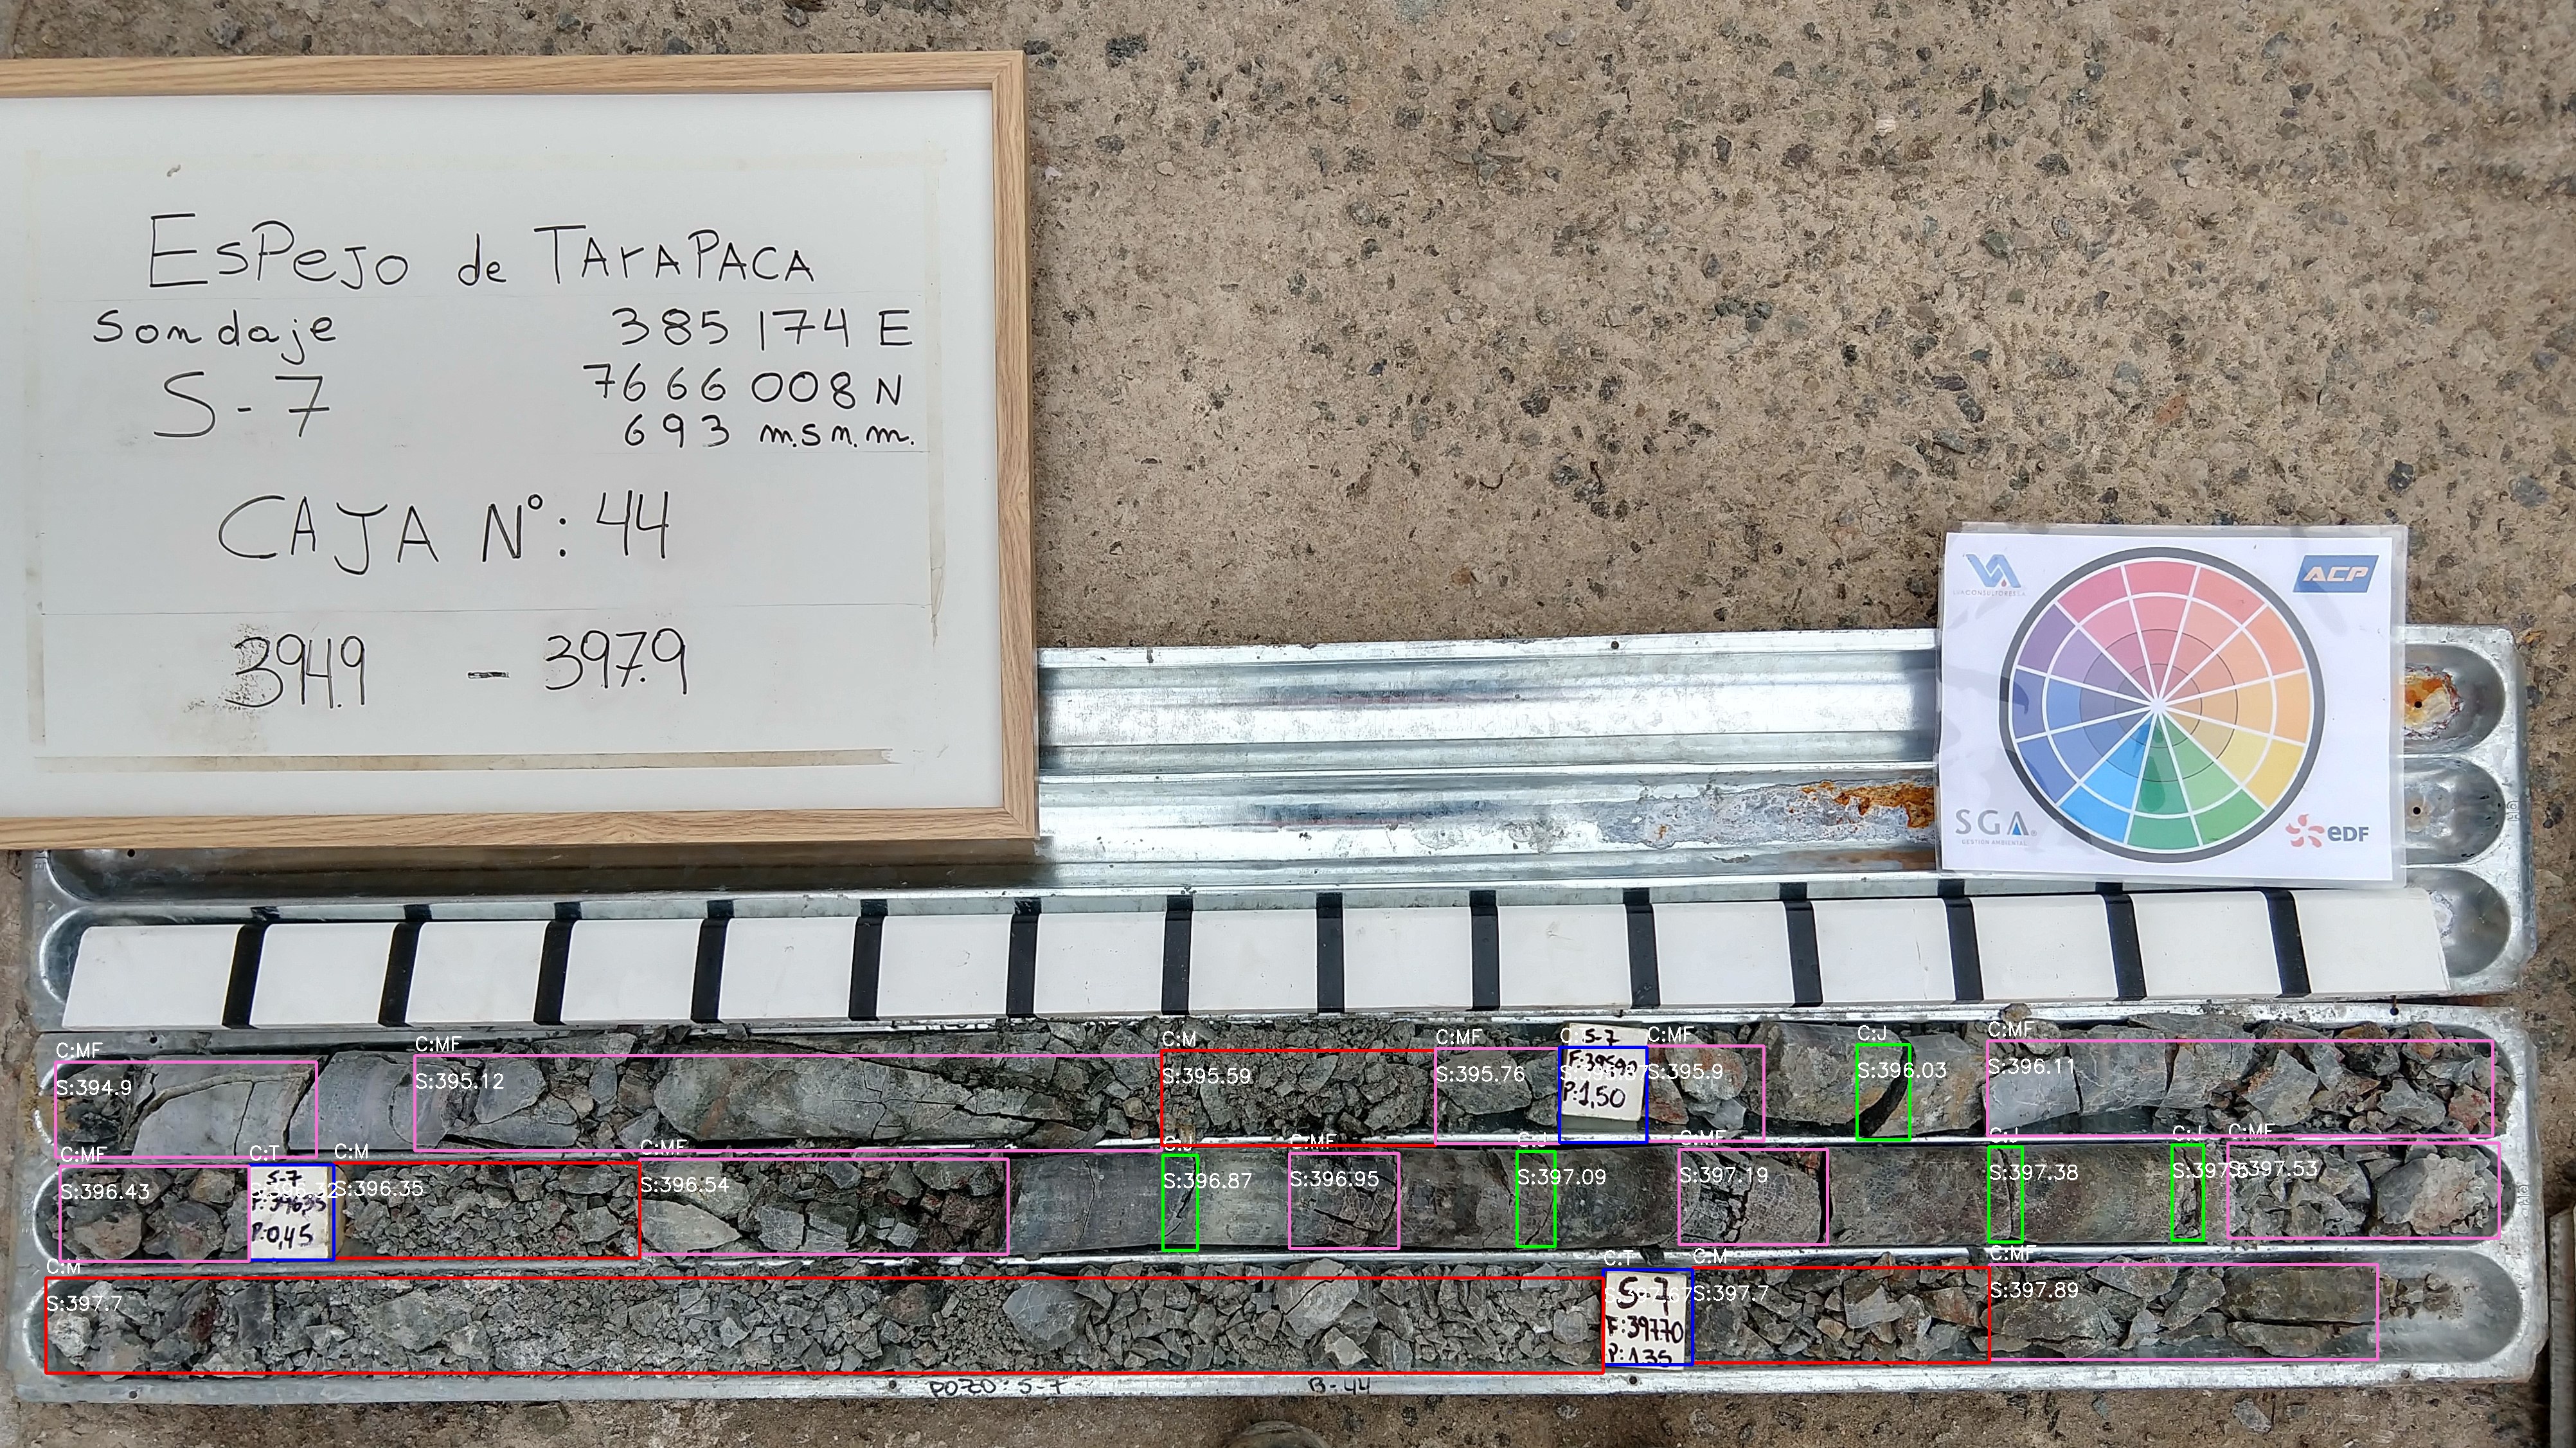 ESPEJO de TARAPACA
Sondaje
385174 E
S-7
7666008 N
693 m.s.n.m.
CAJA N°: 44
394.9 - 397.9
VA
ACP
SGA
GESTION AMBIENTAL
eDF
C:MF
S:394.9
C:MF
S:395.12
C:M
S:395.59
C:MF
S:395.76
S-7
P:1,50
C:MF
S:395.9
C:J
S:396.03
C:MF
S:396.11
C:MF
S:396.43
C:T
S-7
P:0,45
C:M
S:396.35
C:MF
S:396.54
C:J
S:396.87
C:MF
S:396.95
C:J
S:397.09
C:MF
S:397.19
C:J
S:397.38
C:J
C:MF
S:397.53
C:M
S:397.7
C:T
S-7
F:397.70
P:1.35
C:M
S:397.7
C:MF
S:397.89
POZO: S-7
B-44